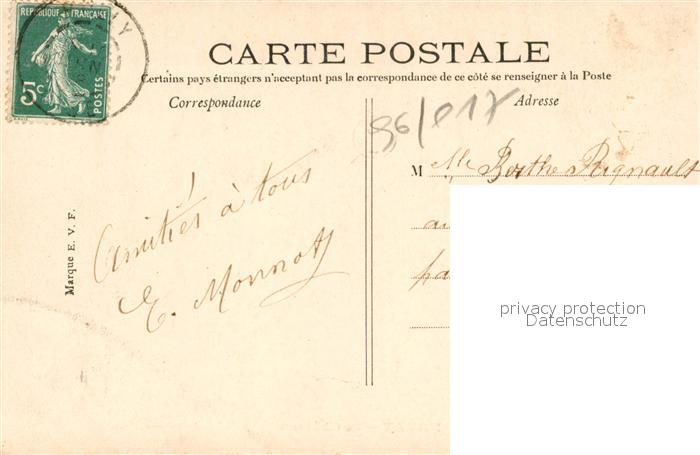 REPUBLIQUE FRANÇAISE
5c
POSTES
CARTE POSTALE
Certains pays étrangers n'acceptant pas la correspondance de ce côté se renseigner à la Poste
Correspondance
Adresse
96/017
Marque E. V. F.
Amitiés à tous
E. Monnot
M Mlle Berthe Regnault
au
pa
privacy protection
Datenschutz